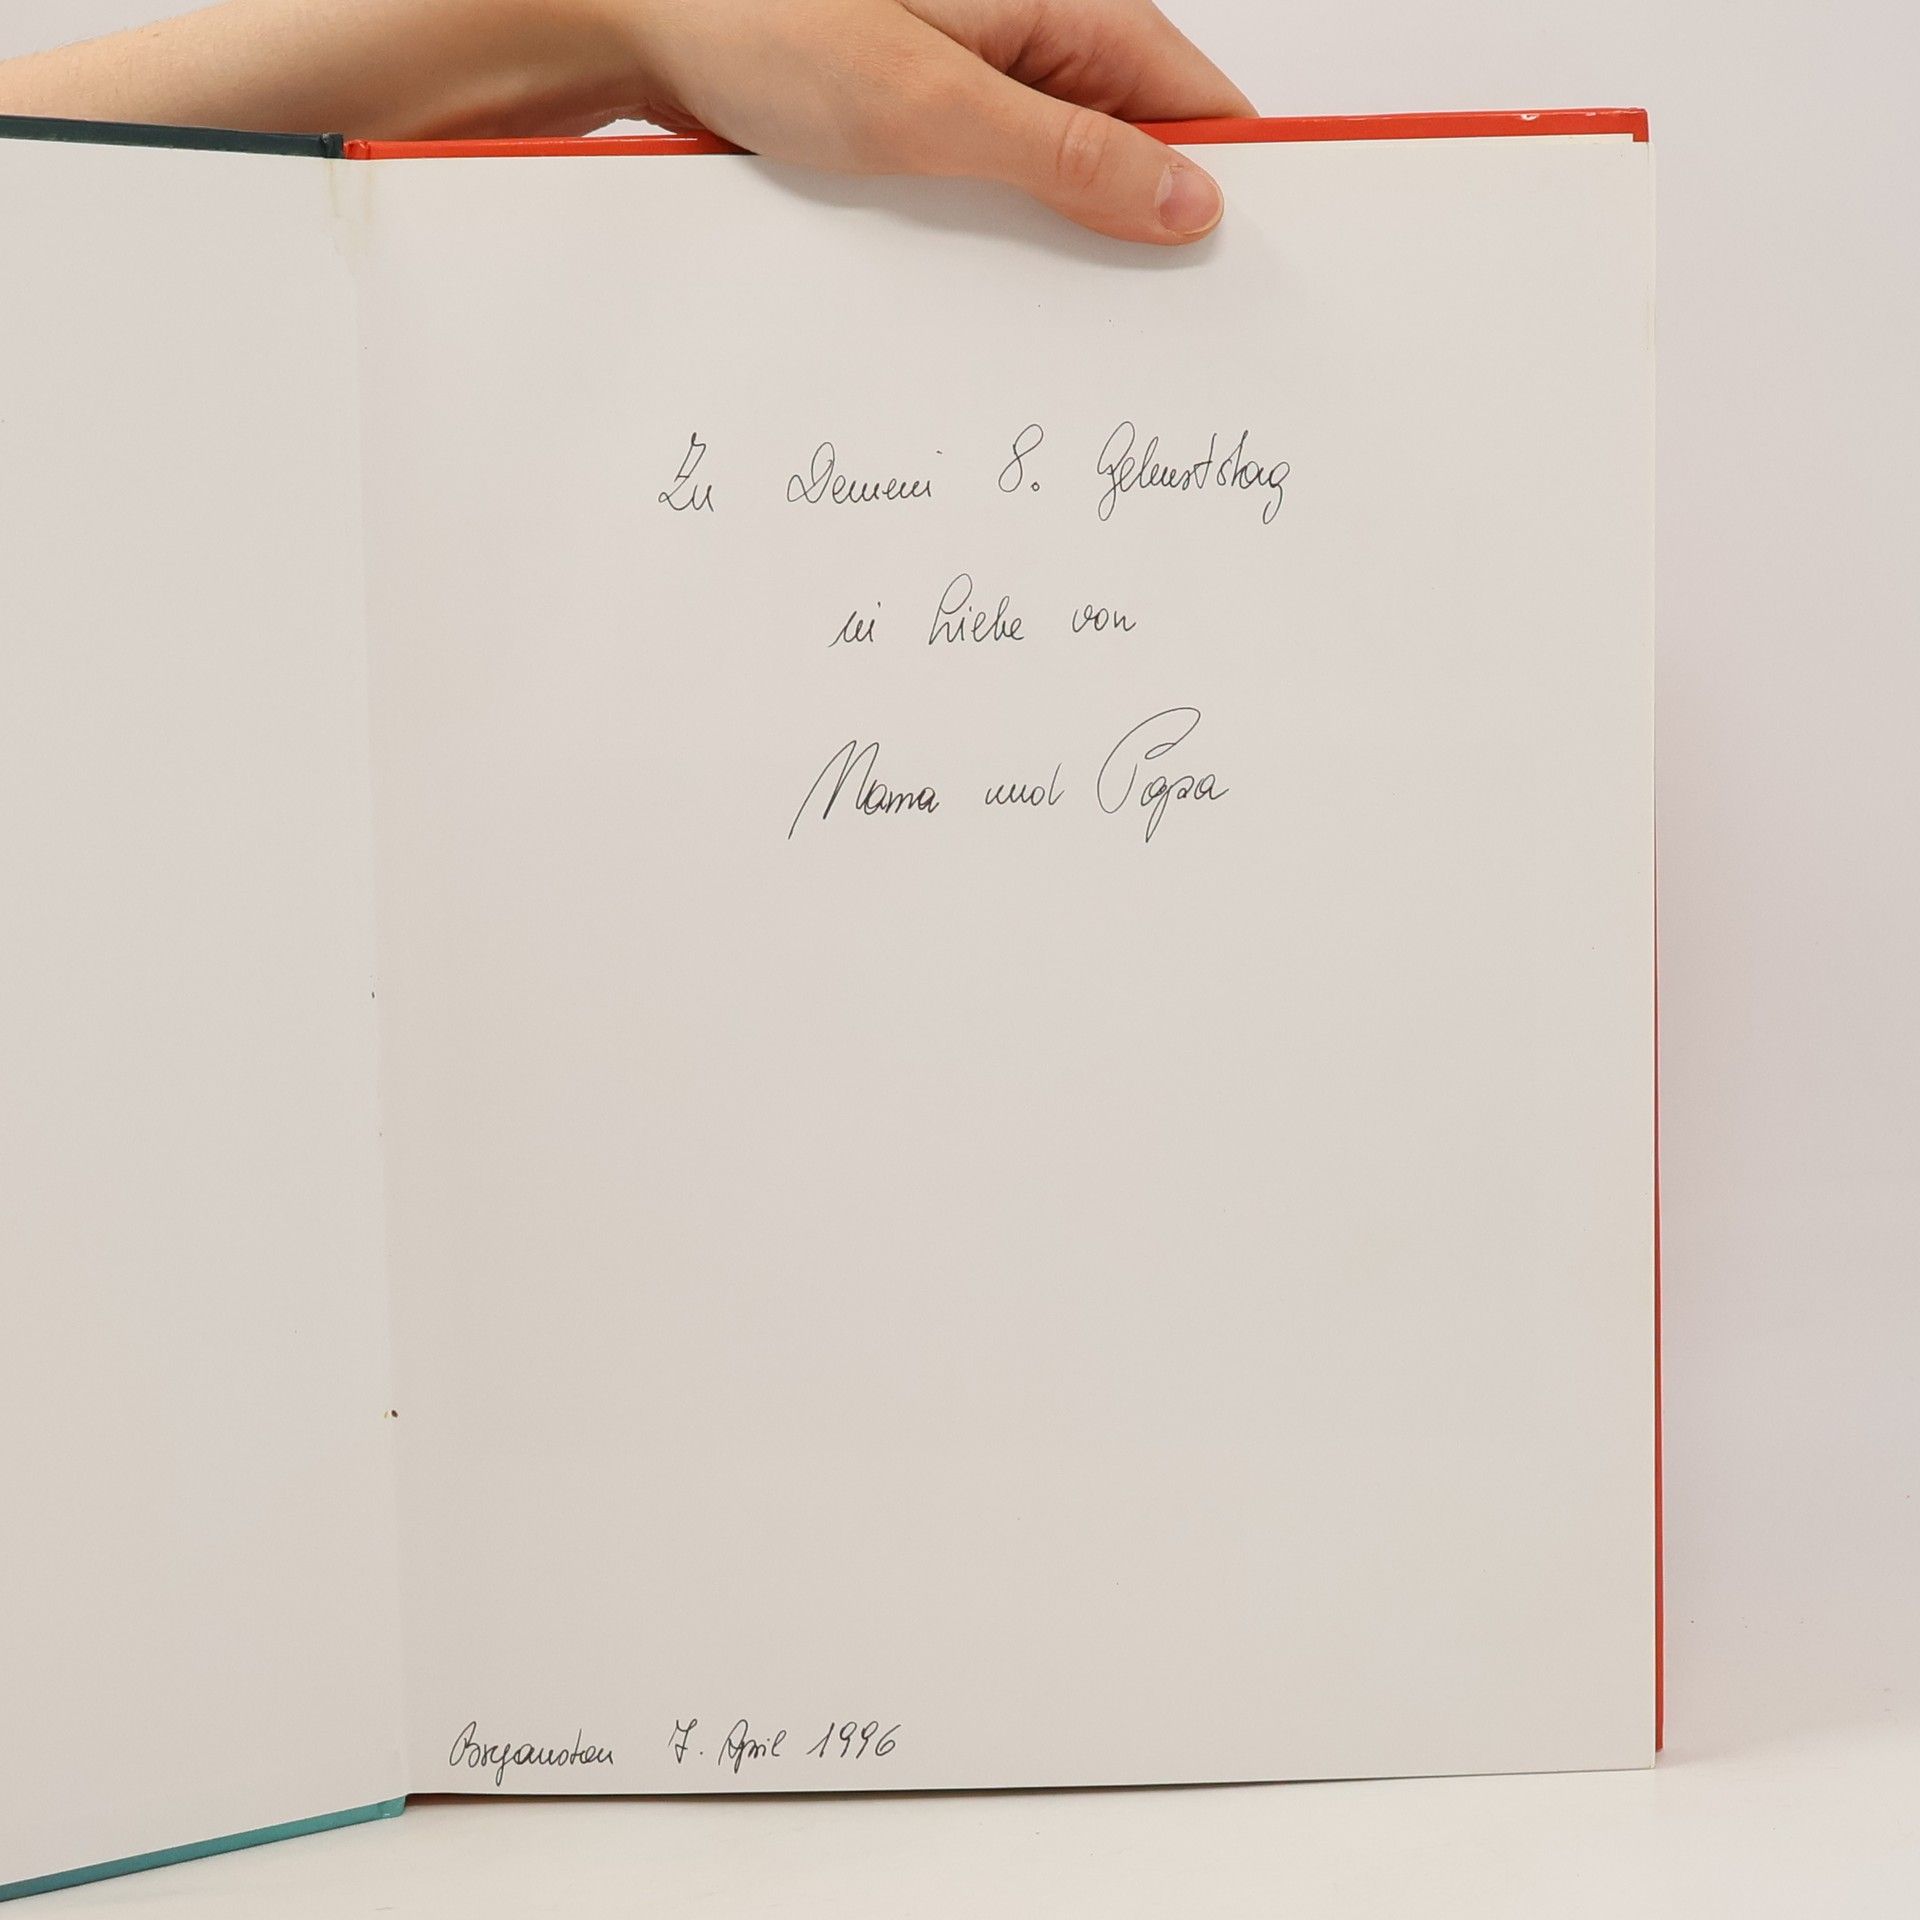 Zu Deinem 8. Geburtstag
in Liebe von
Mama und Papa
Bryanston 7. April 1996